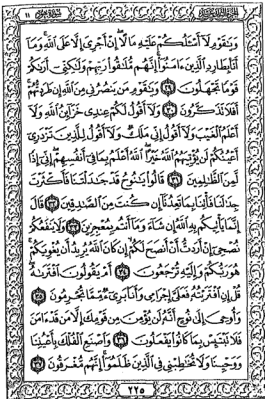 الجزء الثاني عشر سورة هود ١١
وَيَٰقَوْمِ لَآ أَسْـَٔلُكُمْ عَلَيْهِ مَالًا إِنْ أَجْرِىَ إِلَّا عَلَى ٱللَّهِ وَمَآ
أَنَا۠ بِطَارِدِ ٱلَّذِينَ ءَامَنُوٓا۟ إِنَّهُم مُّلَٰقُوا۟ رَبِّهِمْ وَلَٰكِنِّىٓ أَرَىٰكُمْ
قَوْمًا تَجْهَلُونَ ٢٩ وَيَٰقَوْمِ مَن يَنصُرُنِى مِنَ ٱللَّهِ إِن طَرَدتُّهُمْ
أَفَلَا تَذَكَّرُونَ ٣٠ وَلَآ أَقُولُ لَكُمْ عِندِى خَزَآئِنُ ٱللَّهِ وَلَآ
أَعْلَمُ ٱلْغَيْبَ وَلَآ أَقُولُ إِنِّى مَلَكٌ وَلَآ أَقُولُ لِلَّذِينَ تَزْدَرِىٓ
أَعْيُنُكُمْ لَن يُؤْتِيَهُمُ ٱللَّهُ خَيْرًا ٱللَّهُ أَعْلَمُ بِمَا فِىٓ أَنفُسِهِمْ إِنِّىٓ إِذًا
لَّمِنَ ٱلظَّٰلِمِينَ ٣١ قَالُوا۟ يَٰنُوحُ قَدْ جَٰدَلْتَنَا فَأَكْثَرْتَ
جِدَٰلَنَا فَأْتِنَا بِمَا تَعِدُنَآ إِن كُنتَ مِنَ ٱلصَّٰدِقِينَ ٣٢ قَالَ
إِنَّمَا يَأْتِيكُم بِهِ ٱللَّهُ إِن شَآءَ وَمَآ أَنتُم بِمُعْجِزِينَ ٣٣ وَلَا يَنفَعُكُمْ
نُصْحِىٓ إِنْ أَرَدتُّ أَنْ أَنصَحَ لَكُمْ إِن كَانَ ٱللَّهُ يُرِيدُ أَن يُغْوِيَكُمْ
هُوَ رَبُّكُمْ وَإِلَيْهِ تُرْجَعُونَ ٣٤ أَمْ يَقُولُونَ ٱفْتَرَىٰهُ
قُلْ إِنِ ٱفْتَرَيْتُهُۥ فَعَلَىَّ إِجْرَامِى وَأَنَا۠ بَرِىٓءٌ مِّمَّا تُجْرِمُونَ ٣٥
وَأُوحِىَ إِلَىٰ نُوحٍ أَنَّهُۥ لَن يُؤْمِنَ مِن قَوْمِكَ إِلَّا مَن قَدْ ءَامَنَ
فَلَا تَبْتَئِسْ بِمَا كَانُوا۟ يَفْعَلُونَ ٣٦ وَٱصْنَعِ ٱلْفُلْكَ بِأَعْيُنِنَا
وَوَحْيِنَا وَلَا تُخَٰطِبْنِى فِى ٱلَّذِينَ ظَلَمُوٓا۟ إِنَّهُم مُّغْرَقُونَ ٣٧
٢٢٥